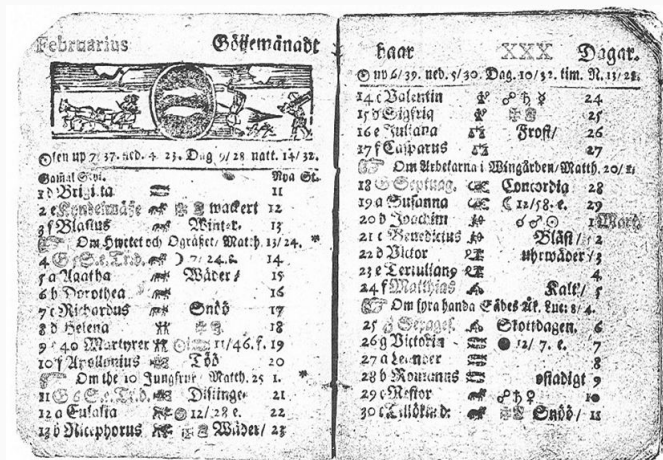 Februarius Göijemånadt
Solen up 7/37. ned. 4 23. Dag 9/28 natt. 14/32.
Gamal Styl. Nya St.
1 d Brigi.ta 11
2 e Kyndelmässe wackert 12
3 f Blasius Winter. 13
Om Hwetet och Ogräset/ Matth. 13/24. *
4 G 5 S.e.Tr.d. 7/24.e. 14
5 a Agatha Wäder/ 15
6 b Dorothea 16
7 c Richardus Snöö 17
8 d Helena 18
9 e 40 Martyrer 11/46.f. 19
10 f Apollonius Töö 20
Om the 10 Jungfrur Matth. 25 1. *
11 G 6 S.e.Tr.d. Distinge 21
12 a Eulalia 12/28 e. 22
13 b Nicephorus Wäder/ 23
haar XXX Dagar.
up 6/39. ned. 5/30. Dag. 10/52. tim. N. 13/28.
14 c Valentin ☍ ♄ ☿ 24
15 d Sigfrid 25
16 e Juliana Frost/ 26
17 f Casparus 27
Om Arbetarna i Wingården/Matth. 20/1.
18 G Septuag. Concordia 28
19 a Susanna ☾ 12/58. e. 29
20 b Joachim ☌ ♂ ☉ 1 Mart.
21 c Benedictus Blåst/ 2
22 d Victor uhrwäder/ 3
23 e Tertulian9 4
24 f Matthias Kalt/ 5
Om fyra handa Sädes Åk. Luc: 8/4.
25 G Sexages. Skottdagen. 6
26 g Victorin ● 12/7. e. 7
27 a Leander 8
28 b Romanus ostadigt 9
29 c Nestor ☍ ♄ ♀ 10
30 c Tillökind: Snöö/ 11